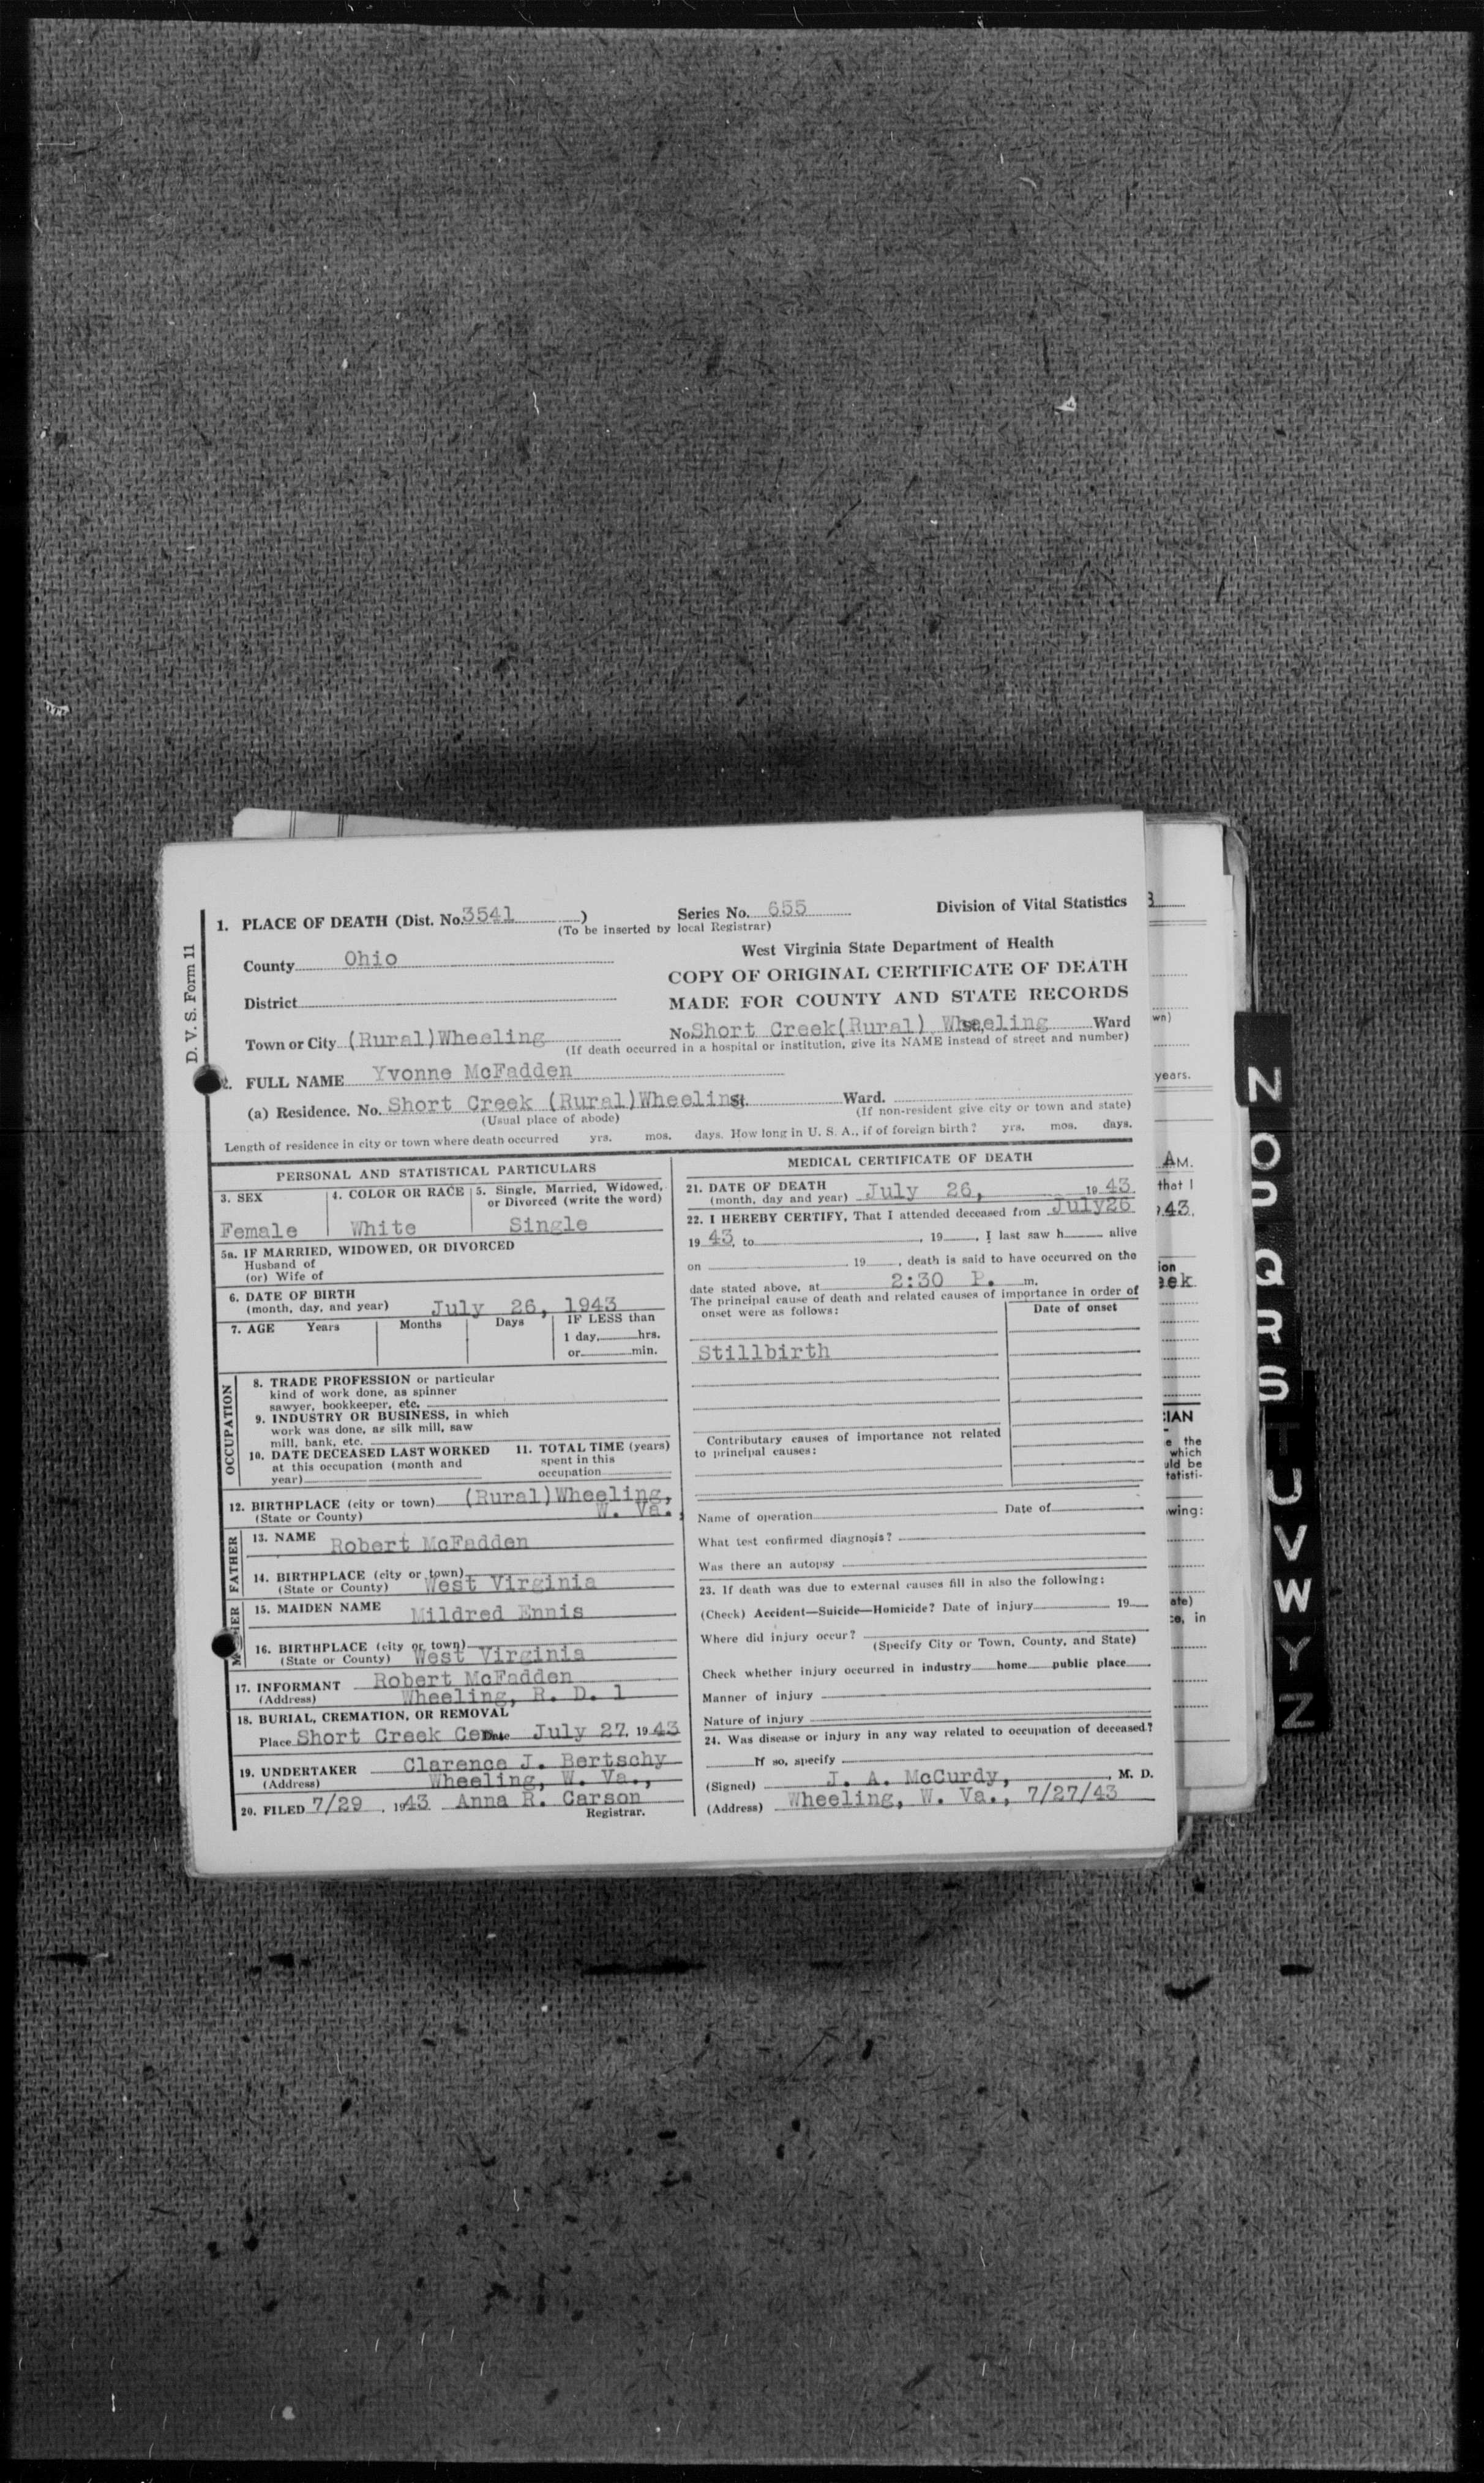 D. V. S. Form 11
1. PLACE OF DEATH (Dist. No. 3541 ) Series No. 655 Division of Vital Statistics
(To be inserted by local Registrar)
County Ohio West Virginia State Department of Health
COPY OF ORIGINAL CERTIFICATE OF DEATH
District MADE FOR COUNTY AND STATE RECORDS
Town or City (Rural)Wheeling No. Short Creek(Rural) Wheeling St. Ward
(If death occurred in a hospital or institution, give its NAME instead of street and number)
2. FULL NAME Yvonne McFadden
(a) Residence. No. Short Creek (Rural)Wheeling St. Ward.
(Usual place of abode) (If non-resident give city or town and state)
Length of residence in city or town where death occurred yrs. mos. days. How long in U. S. A., if of foreign birth? yrs. mos. days.
PERSONAL AND STATISTICAL PARTICULARS
3. SEX 4. COLOR OR RACE 5. Single, Married, Widowed,
or Divorced (write the word)
Female White Single
5a. IF MARRIED, WIDOWED, OR DIVORCED
Husband of
(or) Wife of
6. DATE OF BIRTH
(month, day, and year) July 26, 1943
7. AGE Years Months Days IF LESS than
1 day, hrs.
or min.
OCCUPATION
8. TRADE PROFESSION or particular
kind of work done, as spinner
sawyer, bookkeeper, etc.
9. INDUSTRY OR BUSINESS, in which
work was done, as silk mill, saw
mill, bank, etc.
10. DATE DECEASED LAST WORKED 11. TOTAL TIME (years)
at this occupation (month and spent in this
year) occupation
12. BIRTHPLACE (city or town) (Rural)Wheeling,
(State or County) W. Va.
FATHER
13. NAME Robert McFadden
14. BIRTHPLACE (city or town)
(State or County) West Virginia
MOTHER
15. MAIDEN NAME Mildred Ennis
16. BIRTHPLACE (city or town)
(State or County) West Virginia
17. INFORMANT Robert McFadden
(Address) Wheeling, R. D. 1
18. BURIAL, CREMATION, OR REMOVAL
Place Short Creek Cem Date July 27, 1943
19. UNDERTAKER Clarence J. Bertschy
(Address) Wheeling, W. Va.,
20. FILED 7/29 , 1943 Anna R. Carson
Registrar.
MEDICAL CERTIFICATE OF DEATH
21. DATE OF DEATH
(month, day and year) July 26, 1943
22. I HEREBY CERTIFY, That I attended deceased from July26
1943, to , 19 , I last saw h alive
on 19 , death is said to have occurred on the
date stated above, at 2:30 P. m.
The principal cause of death and related causes of importance in order of
onset were as follows: Date of onset
Stillbirth
Contributory causes of importance not related
to principal causes:
Name of operation Date of
What test confirmed diagnosis?
Was there an autopsy
23. If death was due to external causes fill in also the following:
(Check) Accident—Suicide—Homicide? Date of injury 19
Where did injury occur?
(Specify City or Town, County, and State)
Check whether injury occurred in industry home public place
Manner of injury
Nature of injury
24. Was disease or injury in any way related to occupation of deceased?
If so, specify
(Signed) J. A. McCurdy, , M. D.
(Address) Wheeling, W. Va., 7/27/43
wn)
years.
AM.
that I
43.
ion
eek
IAN
e the
which
uld be
tatisti-
wing:
ate)
ce, in
N
O
P
Q
R
S
T
U
V
W
Y
Z